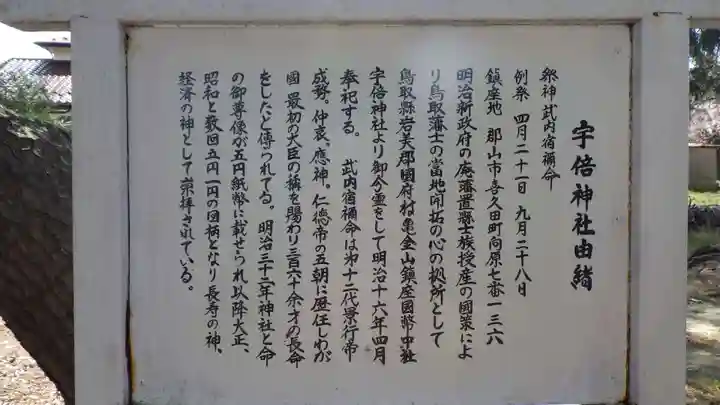 宇倍神社由緒
祭神 武内宿禰命
例祭 四月二十一日 九月二十八日
鎮座地 郡山市喜久田町向原七番一三六
明治新政府の廃藩置縣士族授産の國策によ
り鳥取藩士の當地開拓の心の拠所として
鳥取縣岩美郡國府村亀金山鎮座國幣中社
宇倍神社より御分霊をして明治十六年四月
奉祀する。 武内宿禰命は第十二代景行帝
成務。仲哀。應神。仁德帝の五朝に歴任しわが
國 最初の大臣の稱を賜わり三百六十余才の長命
をしたと傳られてる。明治三十二年神社と命
の御尊像が五円紙幣に載せられ以降大正、
昭和と数回五円一円の図柄となり長寿の神、
経済の神として崇拝されている。